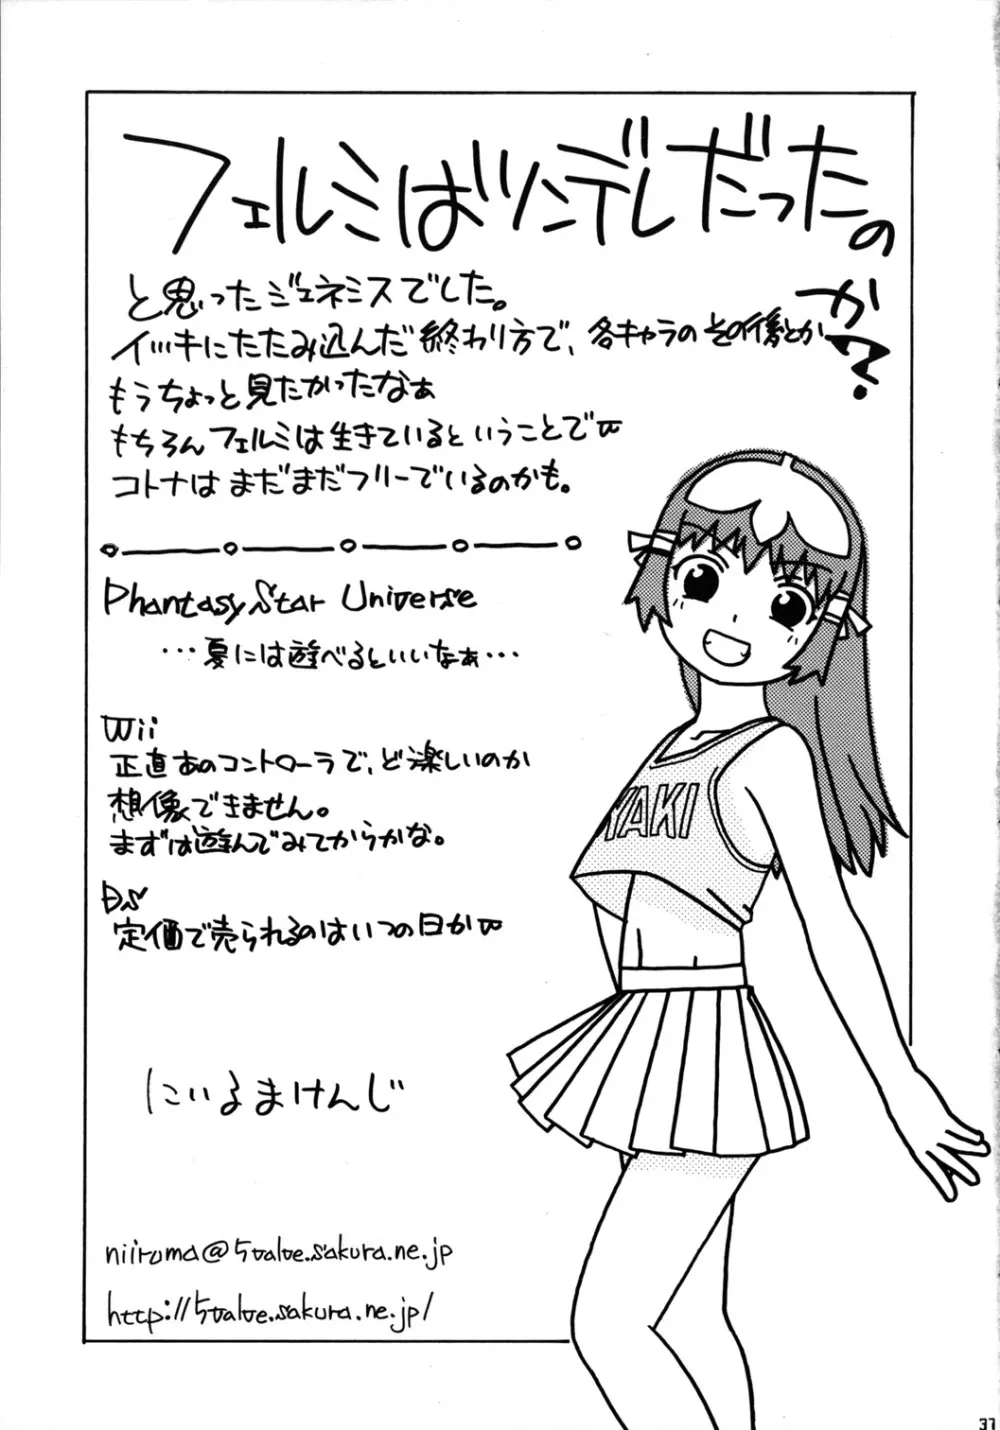 フェルミはツンデレだったのか?
と思ったジェネミスでした。
イッキにたたみ込んだ終わり方で、各キャラのその後とか
もうちょっと見たかったなぁ
もちろんフェルミは生きているということで
コトナはまだまだフリーでいるのかも。
Phantasy Star Universe
…夏には遊べるといいなぁ…
Wii
正直あのコントローラで、ど楽しいのか
想像できません。
まずは遊んでみてからかな。
DS
定価で売られるのはいつの日か
YAKI
にいるまけんじ
niiruma@5value.sakura.ne.jp
http://5value.sakura.ne.jp/
37